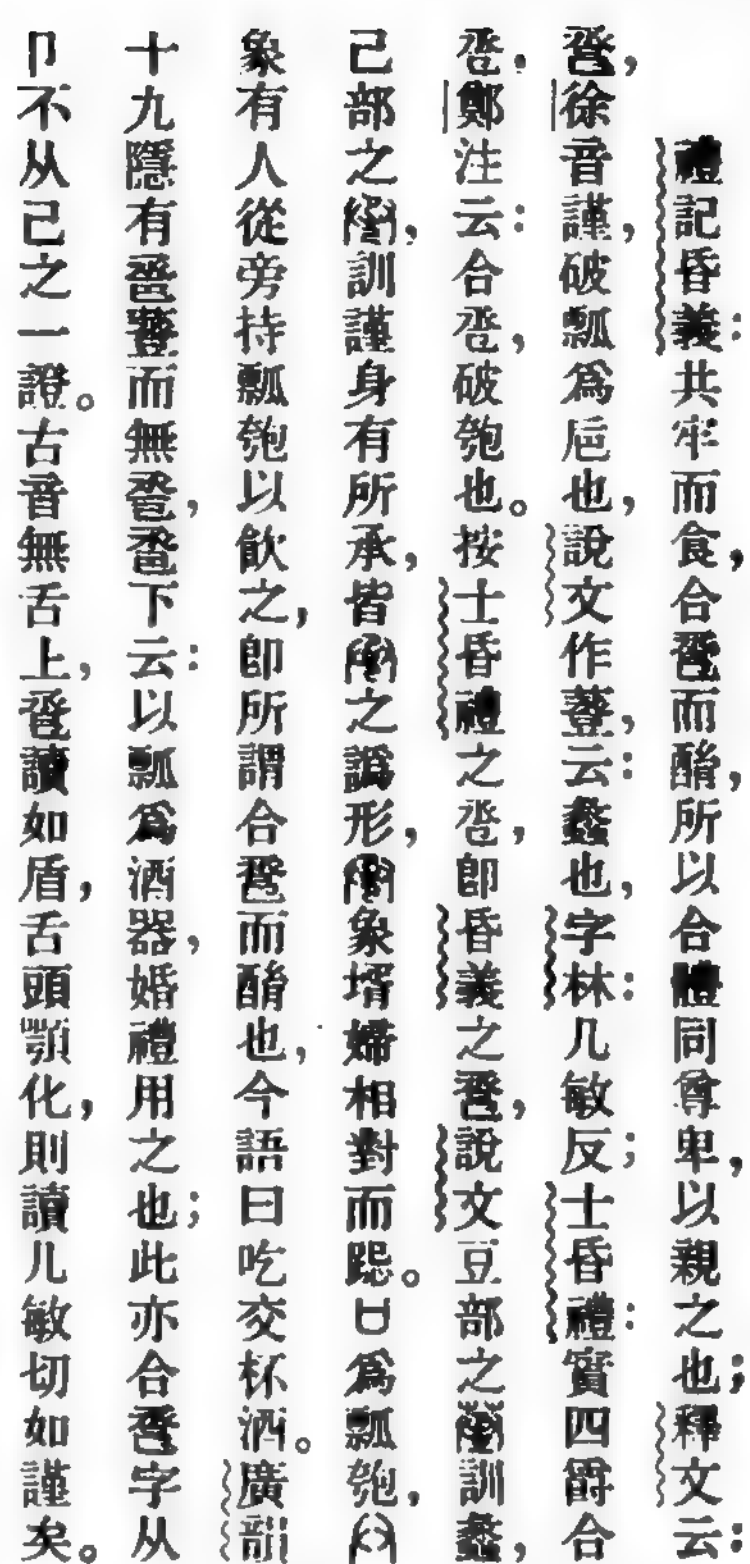 禮記昏義：共牢而食，合巹而酳，所以合體同尊卑，以親之也；釋文云：
巹，徐音謹，破瓢爲巵也，說文作𧯷，云：蠡也，字林：几敏反；士昏禮：實四爵合
巹，鄭注云：合巹，破匏也。按士昏禮之巹，卽昏義之巹，說文豆部之訓蠡，
己部之，訓謹身有所承，皆之譌形，象壻婦相對而跽。𠙵爲瓢匏，
象有人從旁持瓢匏以飮之，卽所謂合巹而酳也，今語曰吃交杯酒。廣韻
十九隱有巹𧯷而無，下云：以瓢爲酒器，婚禮用之也；此亦合巹字从
卩不从己之一證。古音無舌上，巹讀如盾，舌頭顎化，則讀几敏切如謹矣。